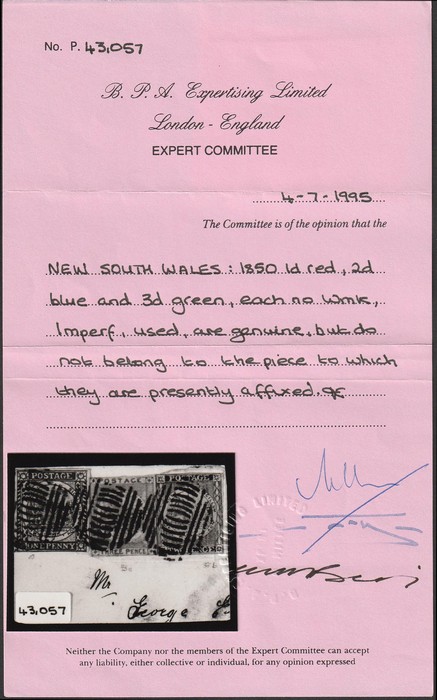 No. P. 43,057
B. P. A. Expertising Limited
London - England
EXPERT COMMITTEE
4-7-1995
The Committee is of the opinion that the
NEW SOUTH WALES: 1850 1d red, 2d
blue and 3d green, each no Wmk,
Imperf, used, are genuine, but do
not belong to the piece to which
they are presently affixed.
POSTAGE
POSTAGE
POSTAGE
ONE PENNY
THREE PENCE
PENCE
Mr
George
43,057
LIMITED
Neither the Company nor the members of the Expert Committee can accept
any liability, either collective or individual, for any opinion expressed